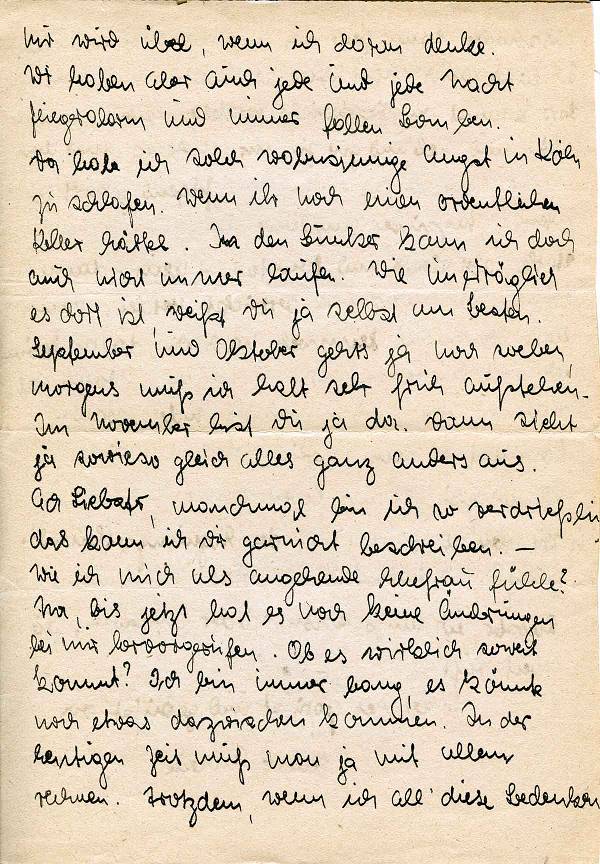 mir wird übel, wenn ich daran denke.
Wir haben aber auch jede und jede Nacht
Fliegeralarm und immer fallen Bomben.
Da habe ich solch wahnsinnige Angst in Köln
zu schlafen. Wenn ihr noch einen ordentlichen
Keller hättet. In den Bunker kann ich doch
auch nicht immer laufen. Wie unerträglich
es dort ist, weißt Du ja selbst am besten.
September und Oktober gehts ja noch
morgens muß ich halt sehr früh aufstehen.
Im November bist Du ja da. Dann sieht
ja sowieso gleich alles ganz anders aus.
Ach Liebster, manchmal bin ich so verdrießlich
das kann ich Dir garnicht beschreiben. –
Wie ich mich als angehende Ehefrau fühle?
Na, bis jetzt hat es noch keine Änderungen
bei mir hervorgerufen. Ob es wirklich soweit
kommt? Ich bin immer bang, es könnte
noch etwas dazwischen kommen. In der
heutigen Zeit muß man ja mit allem
rechnen. Trotzdem, wenn ich all' diese Bedenken